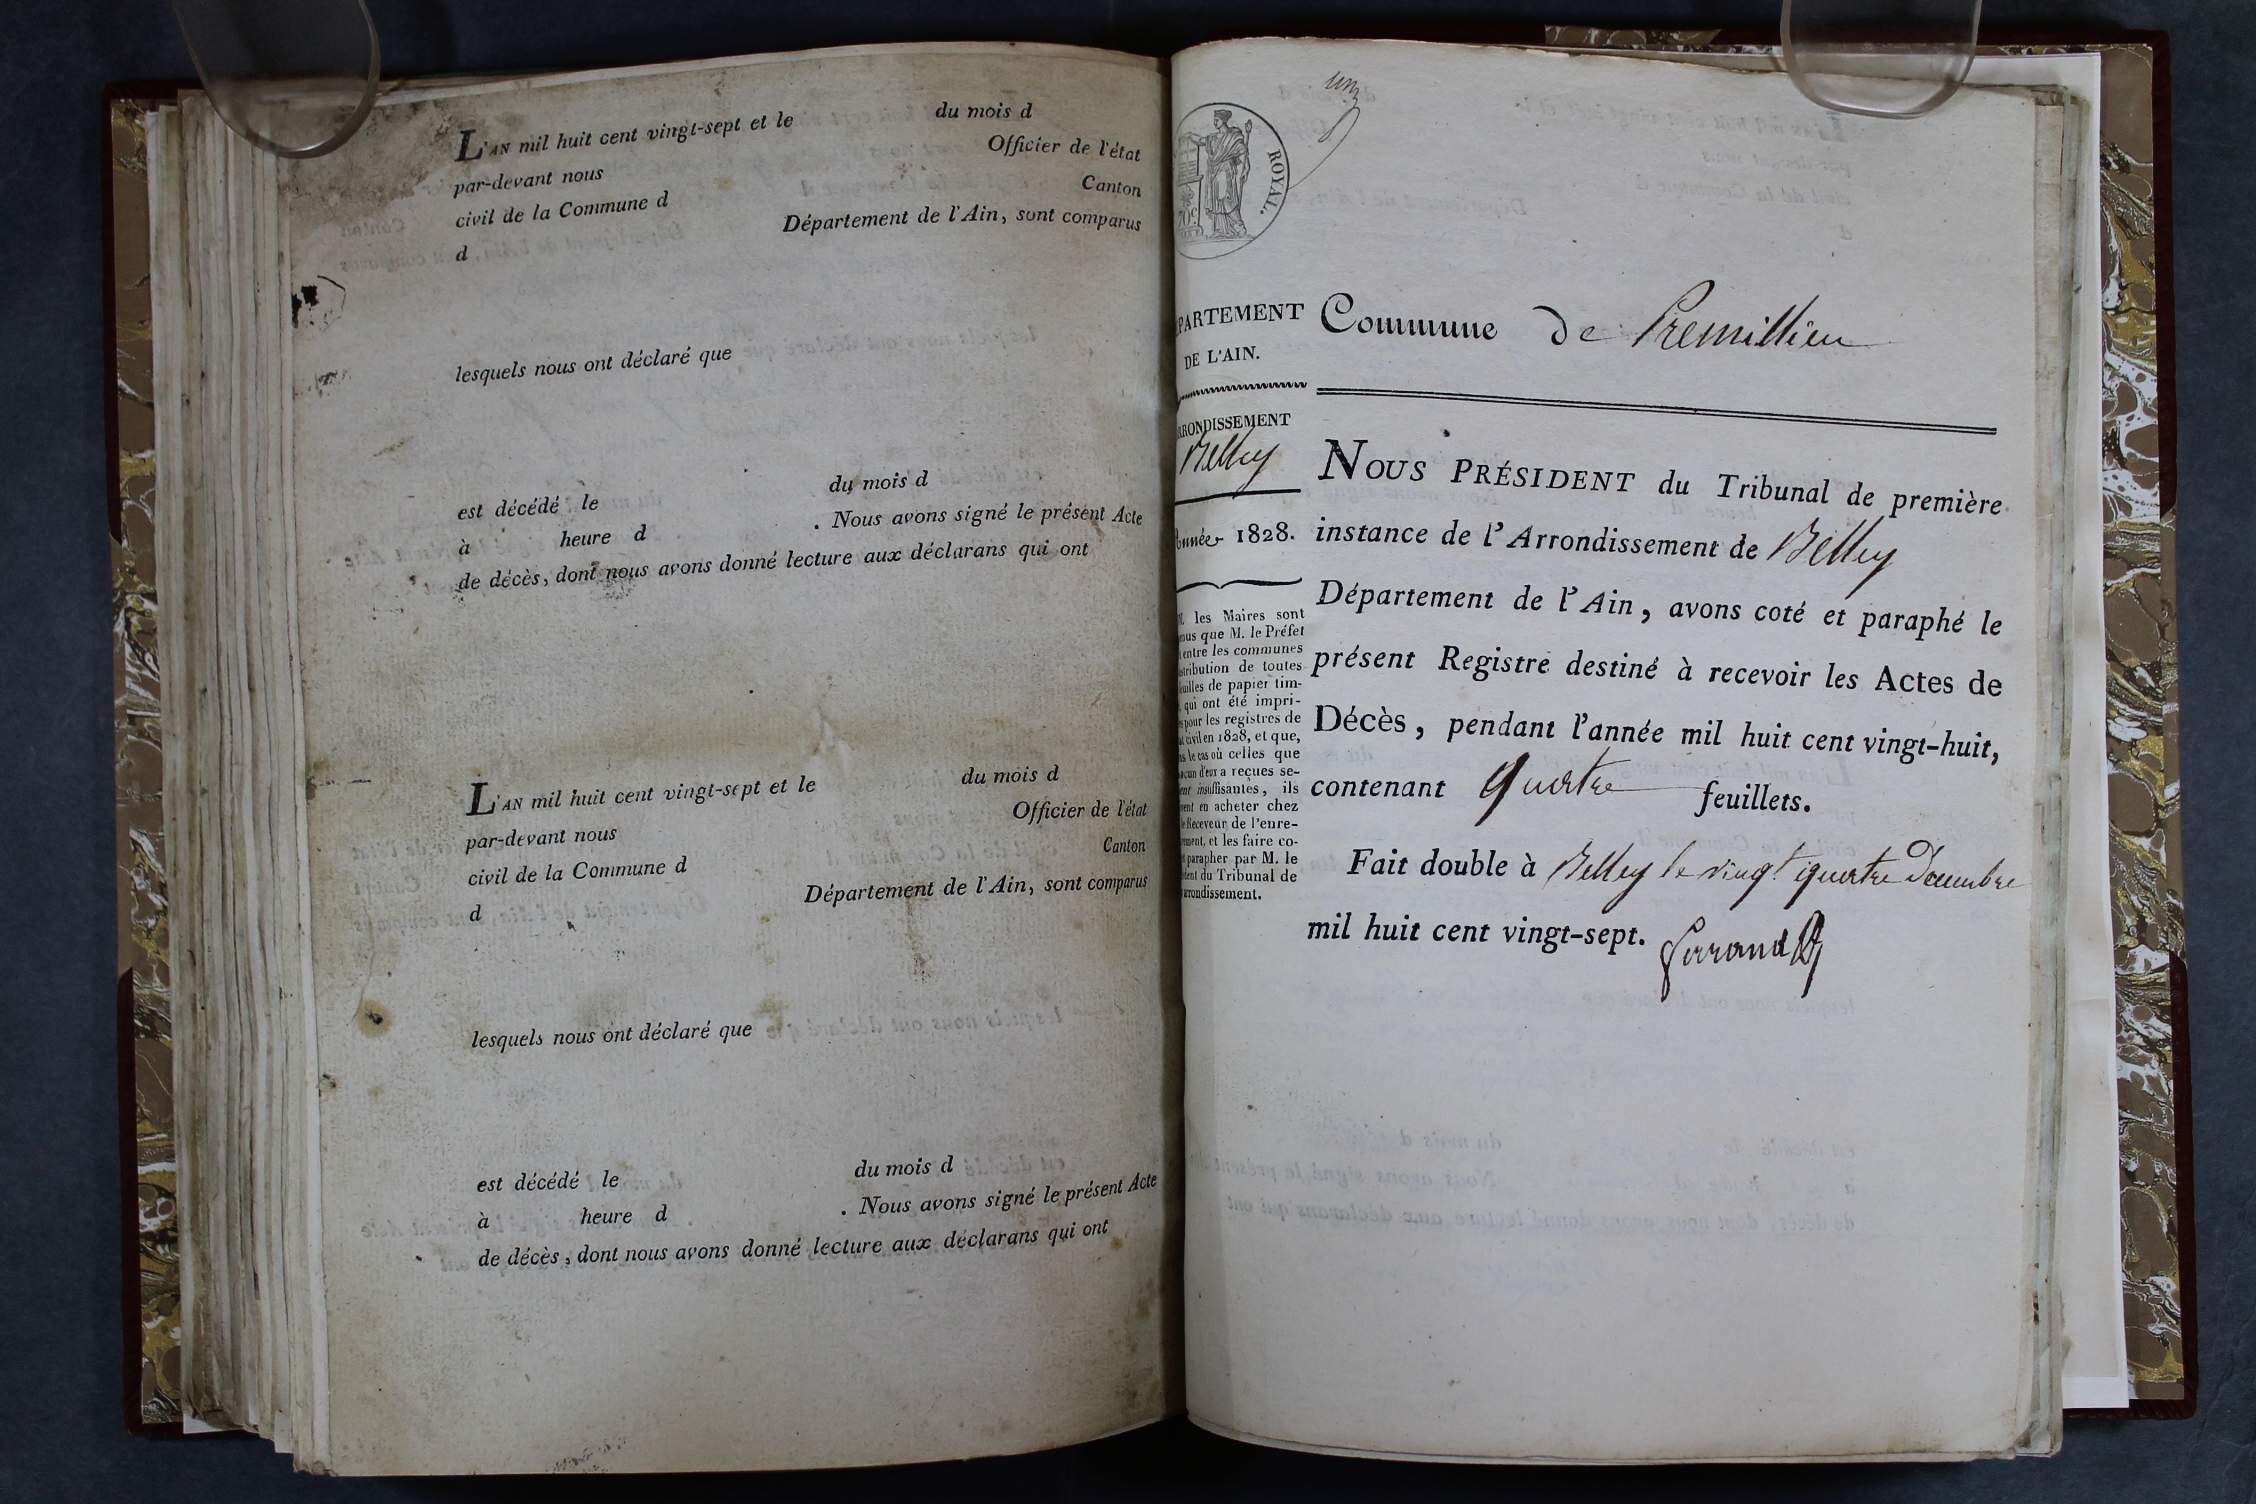 L'AN mil huit cent vingt-sept et le du mois d
par-devant nous Officier de l'état
civil de la Commune d Canton
d Département de l'Ain, sont comparus
lesquels nous ont déclaré que
est décédé le du mois d
à heure d . Nous avons signé le présent Acte
de décès, dont nous avons donné lecture aux déclarans qui ont
L'AN mil huit cent vingt-sept et le du mois d
par-devant nous Officier de l'état
civil de la Commune d Canton
d Département de l'Ain, sont comparus
lesquels nous ont déclaré que
est décédé le du mois d
à heure d . Nous avons signé le présent Acte
de décès, dont nous avons donné lecture aux déclarans qui ont
un
ROYAL.
70c.
PARTEMENT
DE L'AIN.
RRONDISSEMENT
Belley
Année 1828.
les Maires sont
que M. le Préfet
entre les communes
stribution de toutes
uilles de papier tim-
qui ont été impri-
pour les registres de
civil en 1828, et que,
le cas où celles que
acun d'eux a reçues se-
insuffisantes, ils
en acheter chez
Receveur de l'enre-
ement, et les faire co-
parapher par M. le
du Tribunal de
rrondissement.
Commune de Premillieu
NOUS PRÉSIDENT du Tribunal de première
instance de l'Arrondissement de Belley
Département de l'Ain, avons coté et paraphé le
présent Registre destiné à recevoir les Actes de
Décès, pendant l'année mil huit cent vingt-huit,
contenant quatre feuillets.
Fait double à Belley le vingt quatre Décembre
mil huit cent vingt-sept.